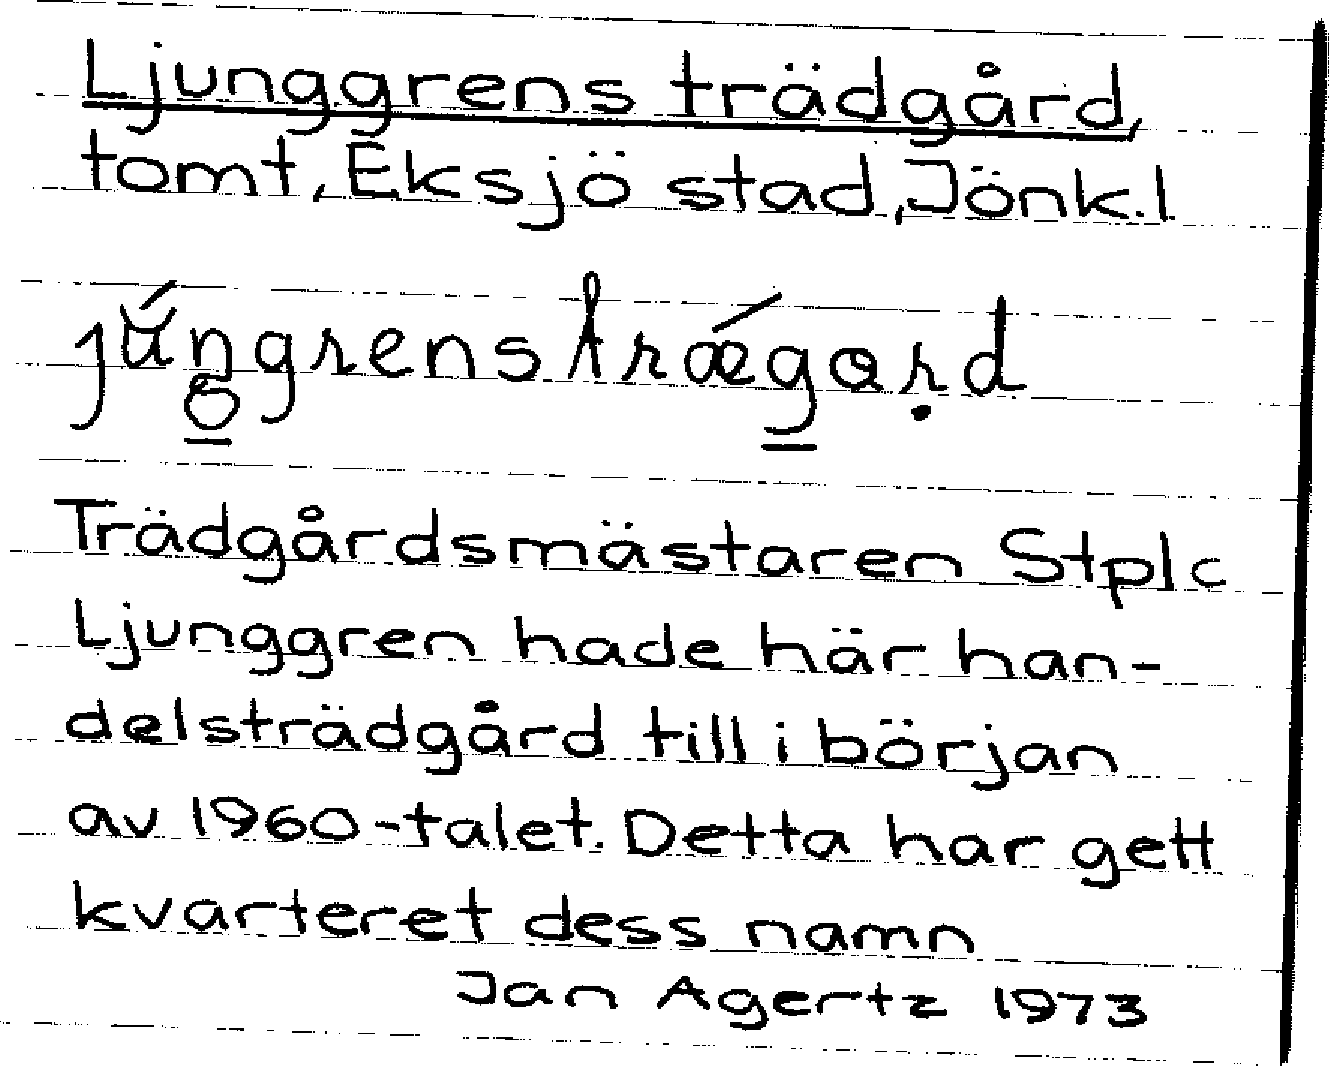 Ljunggrens trädgård,
tomt, Eksjö stad, Jönk.l.
Trädgårdsmästaren Stplc
Ljunggren hade här han-
delsträdgård till i början
av 1960-talet. Detta har gett
kvarteret dess namn
Jan Agertz 1973